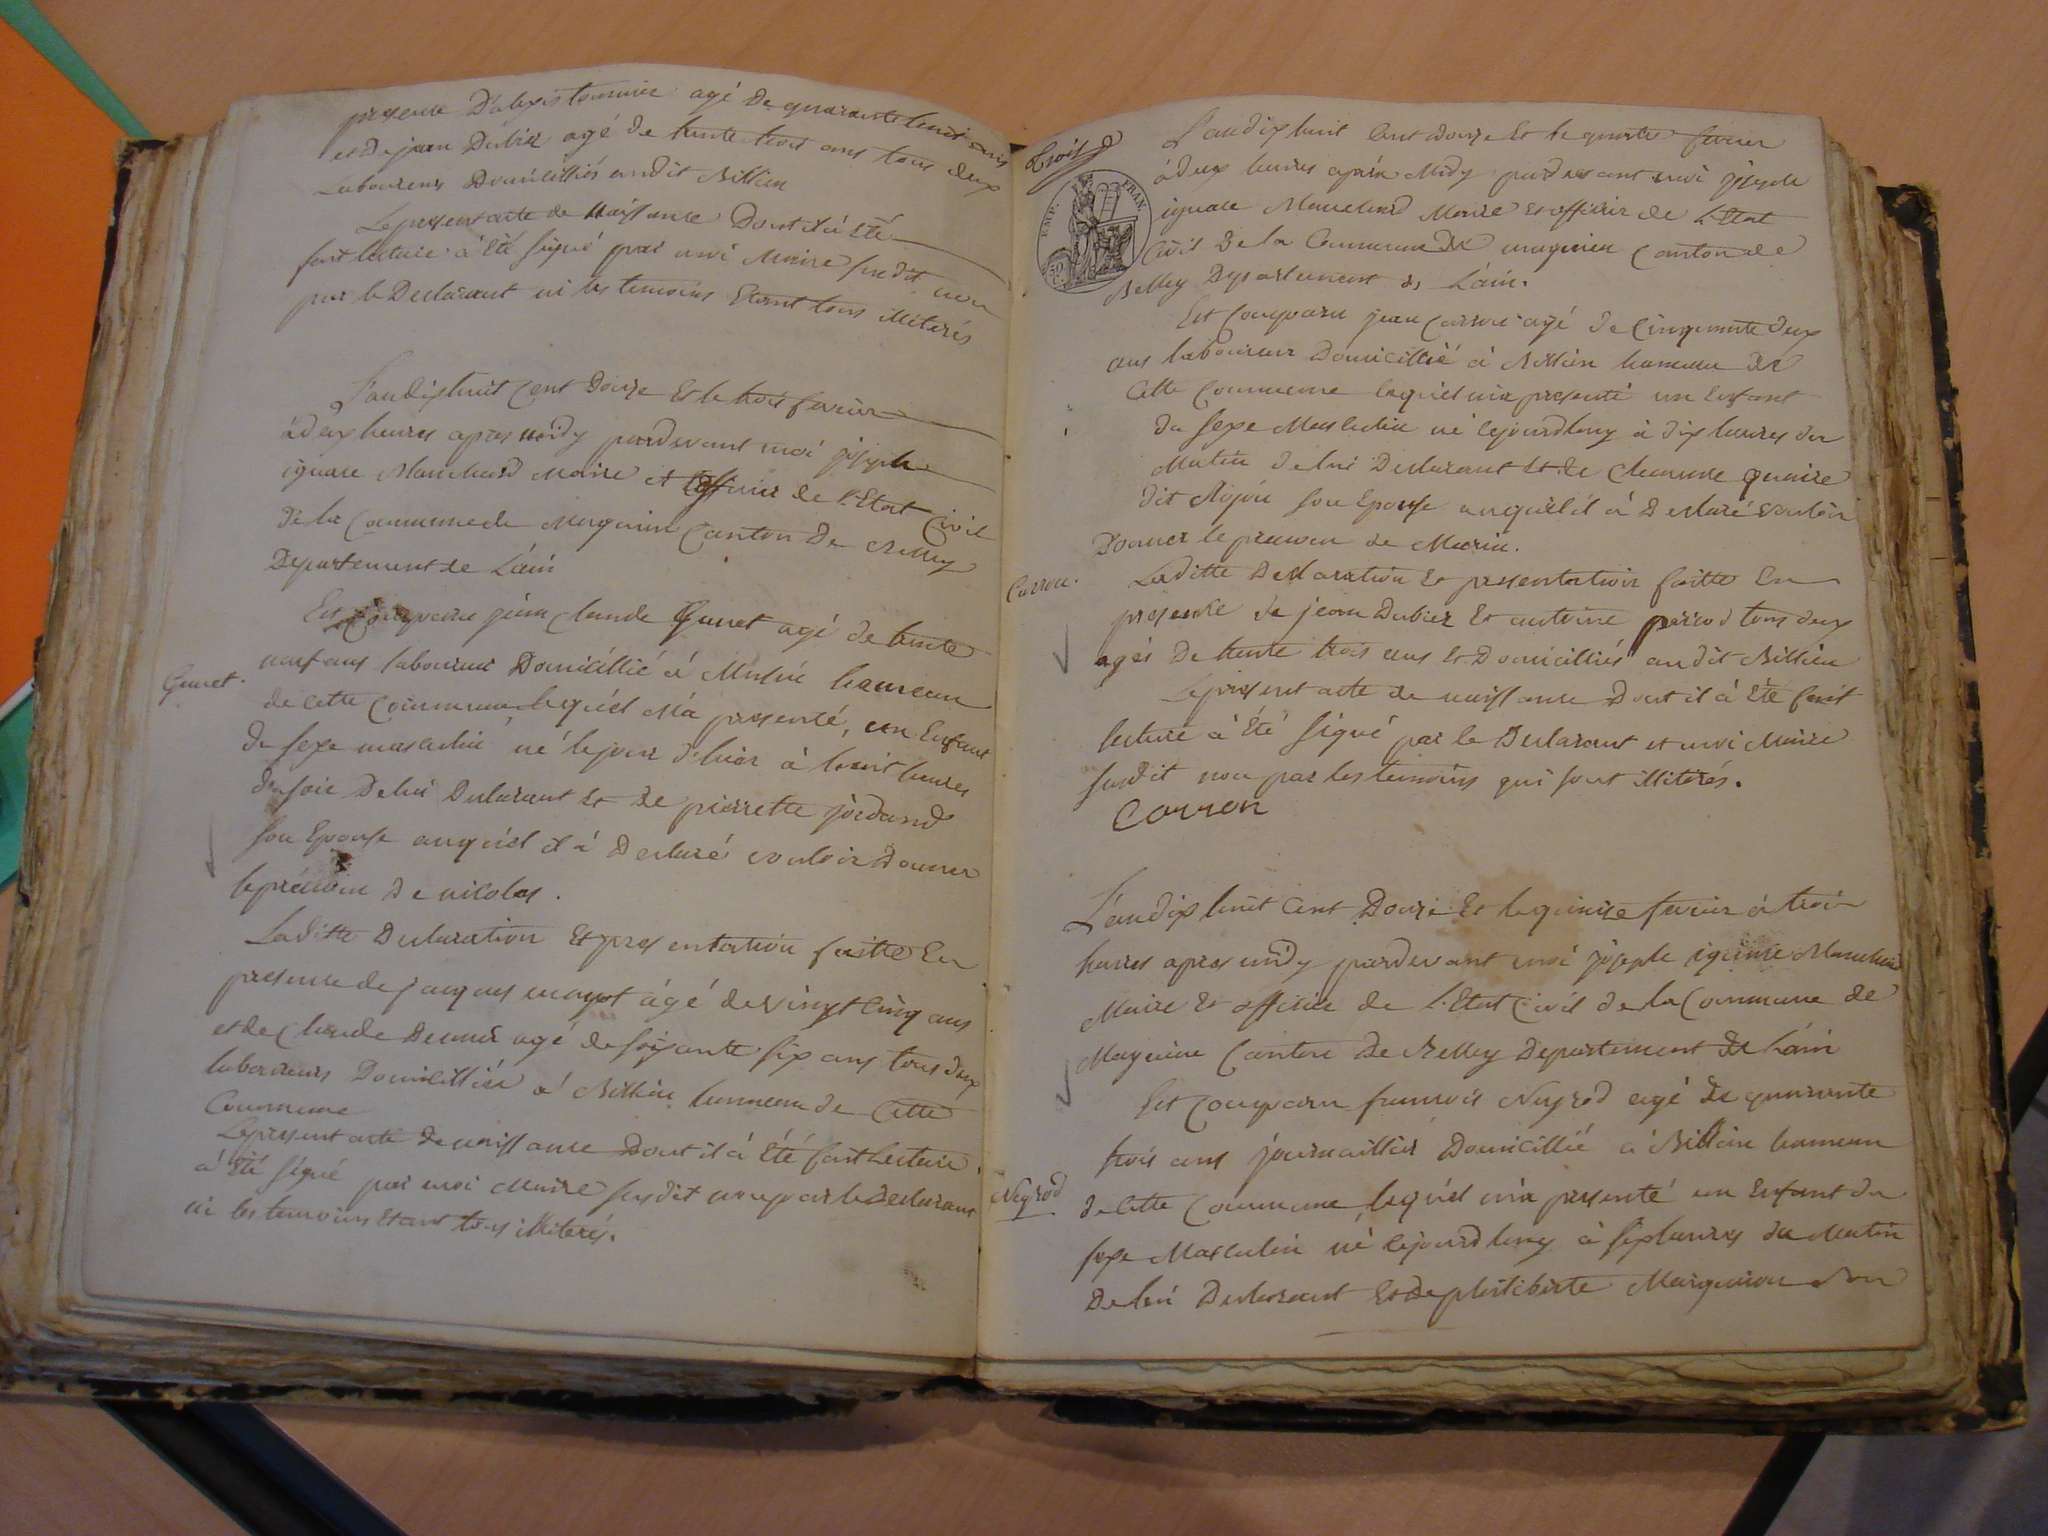 presence d'alexis tournier agé de quarante huit ans
et de jean Dubier agé de trente trois ans tous deux
Laboureurs Domicilliés audit Billieu
Le present acte de naissance Dont il à été
fait lecture à été signé par moi Maire susdit non
par le Declarant ni les temoins Etant tous illiterés
L'an dix huit Cent Douze Et le trois fevrier
à deux heures apres midy pardevant moi joseph
ignace Marchand Maire et officier de l'Etat Civil
de la Commune de Magnieu Canton De Belley
Departement de L'ain
Est Comparu jean Claude Guret agé de trente
neuf ans laboureur Domicillié à hameau
Guret.
de cette Commune lequel M'a presenté, un Enfant
du sexe masculin né le jour d'hier à huit heures
du soir De lui Declarant Et de pierrette jordand
son Epouse auquel il à Declaré vouloir Donner
le prénom De nicolas.
Laditte Declaration Et presentation faitte En
presence de jacques agé de vingt Cinq ans
et de Claude agé de soixante six ans tous deux
laboureurs Domicilliés à Billieu hameau de Cette
Commune
Le present acte de naissance Dont il à été fait Lecture
à été signé par moi Maire susdit non par le Declarant
ni les temoins Etant tous illiterés.
Trois
EMP. FRAN.
L'an dix huit Cent Douze Et le quatre fevrier
à deux heures après Midy pardevant moi joseph
ignace Marchand Maire et officier de L'Etat
Civil De la Commune De magnieu Canton de
Belley Departement de L'ain.
Est Comparu jean Carron agé de Cinquante deux
ans laboureur Domicillié à Billieu hameau de
Cette Commune lequel m'a presenté un Enfant
du sexe Masculin né cejourd'huy à dix heures du
Matin de lui Declarant Et de Clauine
dit son Epouse auquel il à Declaré vouloir
Donner le prenom de Marin.
Carron.
Laditte Declaration Et presentation faitte En
presence de jean Dubier Et antoine tous deux
agés De trente trois ans Et Domicilliés audit Billieu
Le present acte de naissance Dont il à été fait
lecture à été signé par le Declarant et moi Maire
susdit non par les temoins qui sont illiterés.
Carron
L'an dix huit Cent Douze Et le quinze fevrier à trois
heures apres midy pardevant moi joseph ignace Marchand
Maire Et officier de L'Etat Civil de la Commune de
Magnieu Canton De Belley Departement de L'ain
Est Comparu francois Neyrod agé de quarante
trois ans journaillier Domicillié à Billieu hameau
Neyrod
de Cette Commune, lequel m'a presenté un Enfant du
sexe Masculin né cejourd'huy à six heures du Matin
De lui Declarant Et de philiberte son